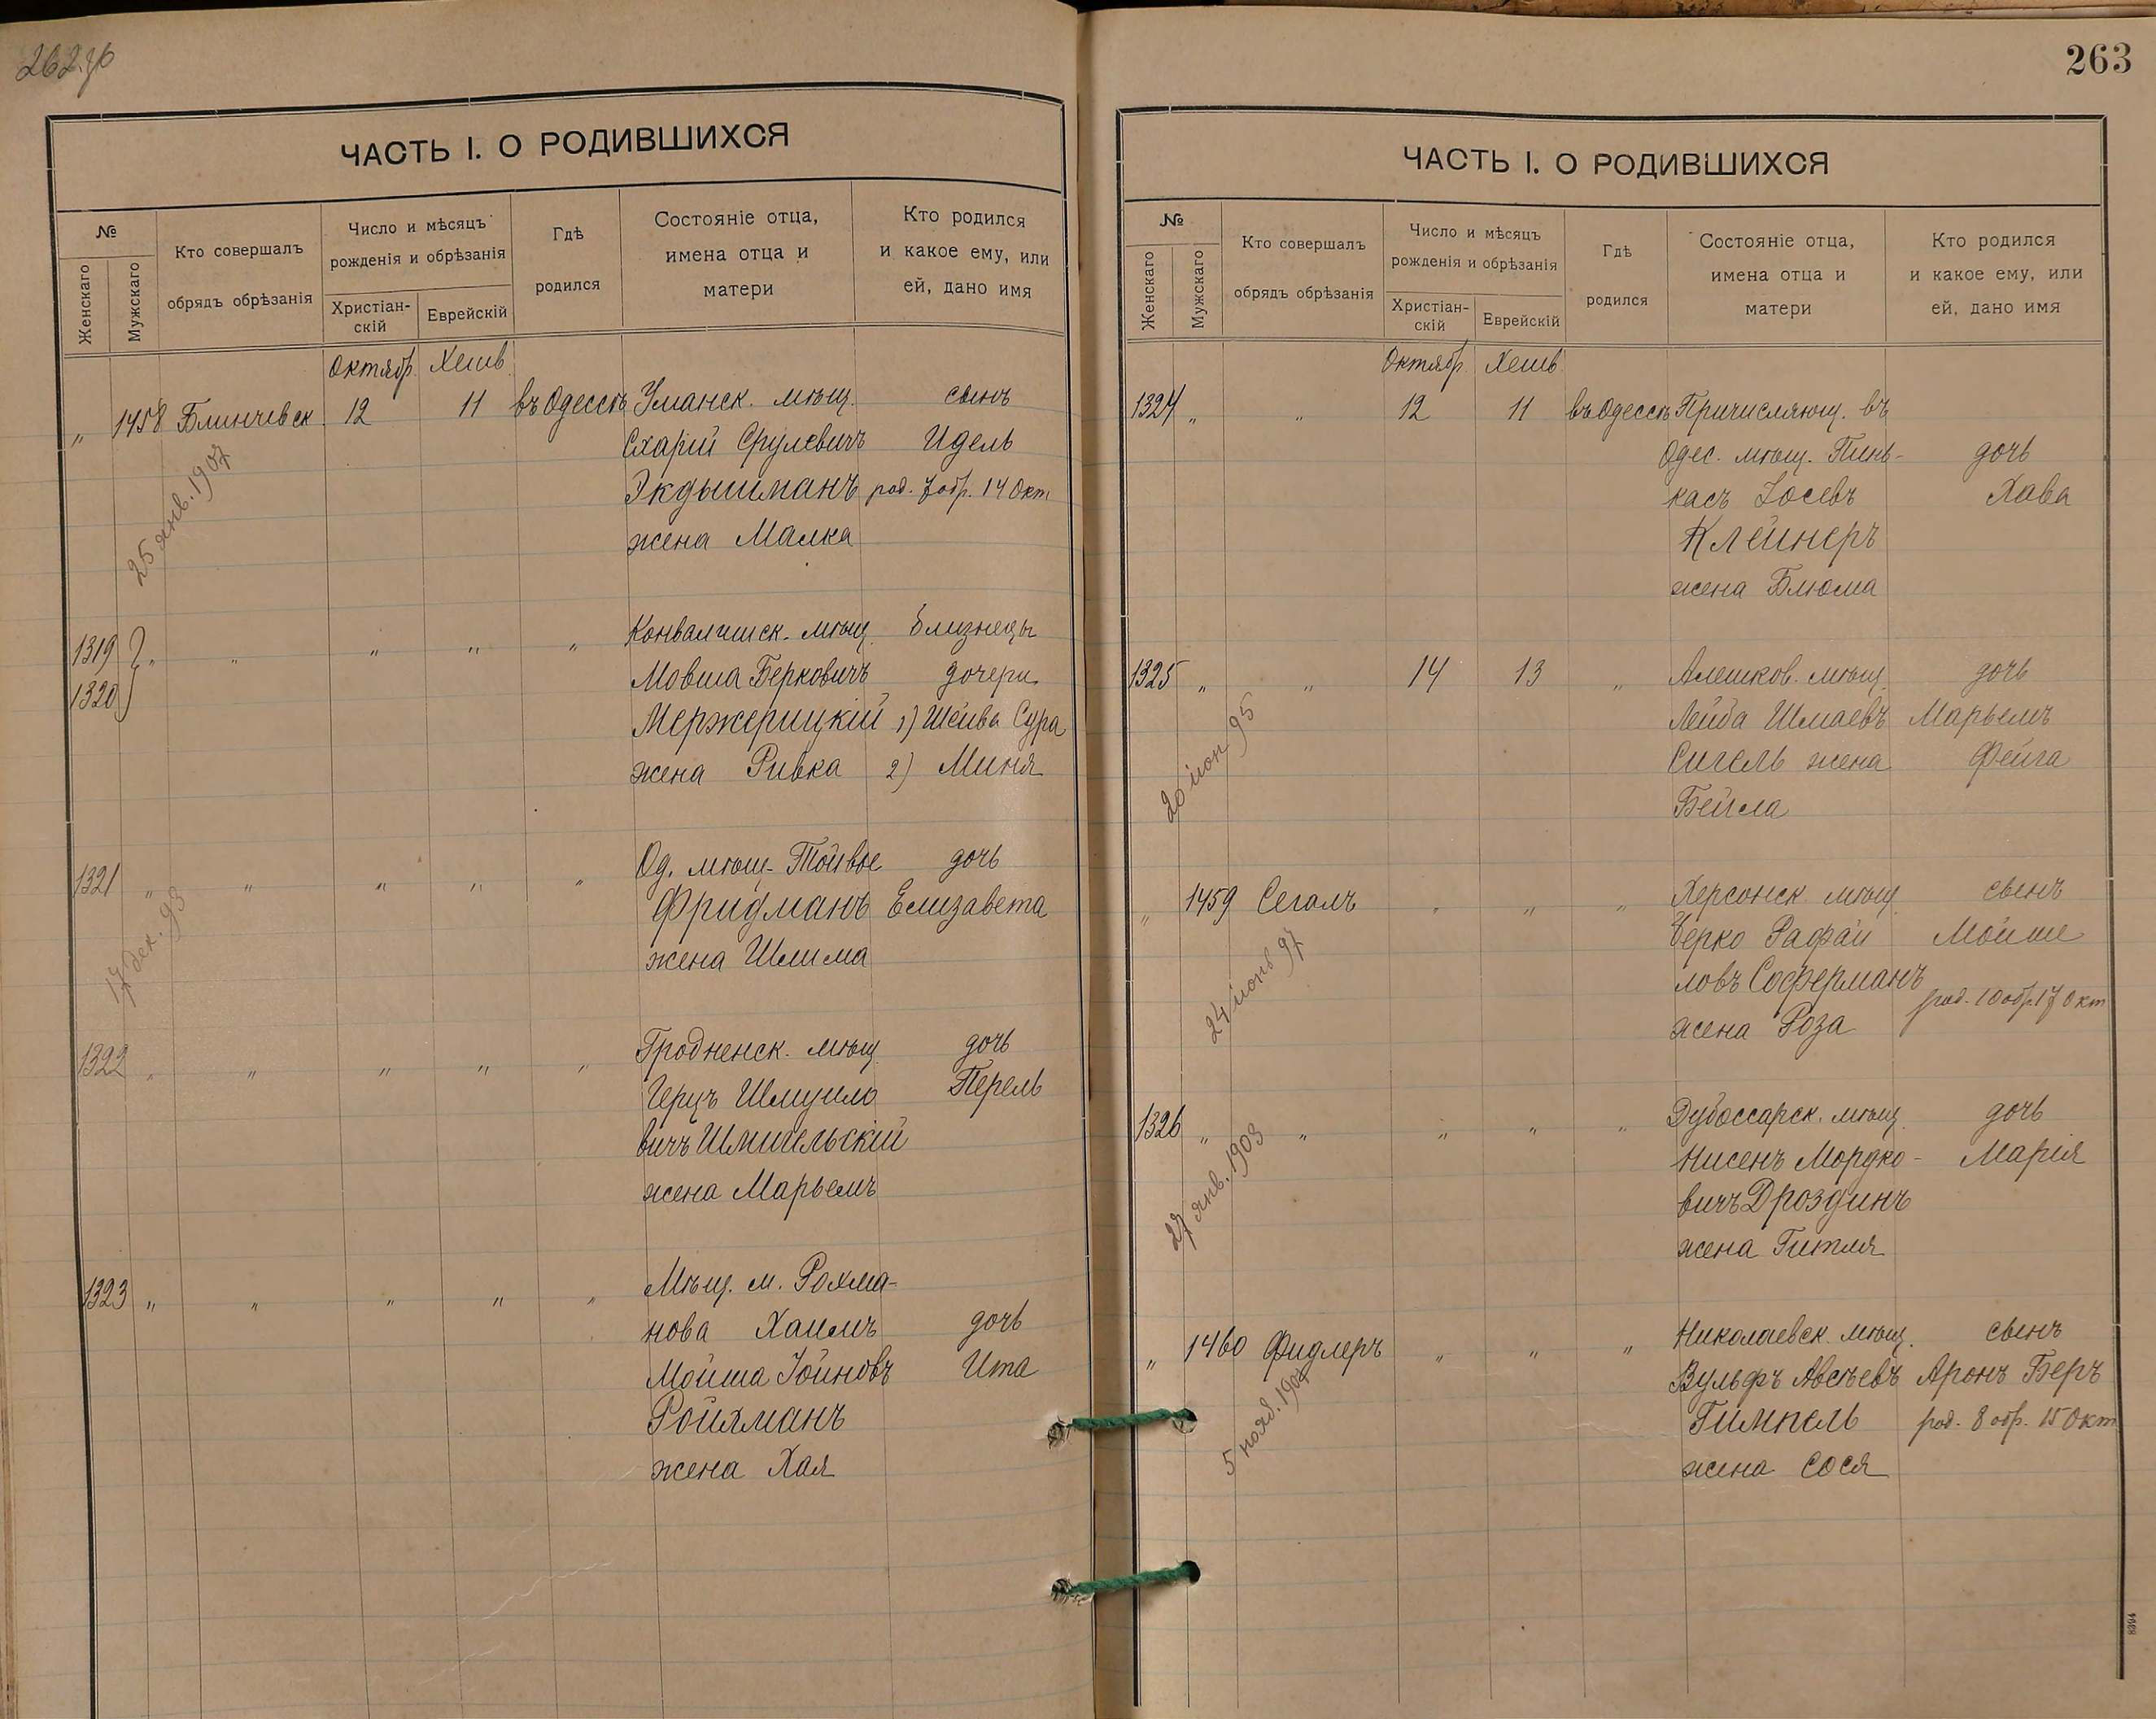 262 об
ЧАСТЬ I. О РОДИВШИХСЯ
№
Женскаго
Мужскаго
Кто совершалъ
обрядъ обрѣзанія
Число и мѣсяцъ
рожденія и обрѣзанія
Христіан-
скій
Еврейскій
Гдѣ
родился
Состояніе отца,
имена отца и
матери
Кто родился
и какое ему, или
ей, дано имя
Октябр. Хешв.
" 1458 Блинчевск. 12 11 въ Одессѣ Уманск. мѣщ. сынъ
Схарій Срулевичъ Идель
Экдышманъ род. 7 обр. 14 Окт
жена Малка
25 янв. 1907
1319 " " " " " мѣщ. близнецы
1320 Мовша Берковичъ дочери
Мержерицкій 1) Шейва Сура
жена Ривка 2) Миня
1321 " " " " " Од. мѣщ. Тойвье дочь
Фридманъ Елизавета
жена Шлима
17 дек. 93
1322 " " " " " Гродненск. мѣщ. дочь
Герцъ Шмуило Перель
вичъ Шмигельскій
жена Марьемъ
1323 " " " " " Мѣщ. м. Рохма-
нова Хаимъ дочь
Мойша Іойновъ Ита
Ройхманъ
жена Хая
263
ЧАСТЬ I. О РОДИВШИХСЯ
№
Женскаго
Мужскаго
Кто совершалъ
обрядъ обрѣзанія
Число и мѣсяцъ
рожденія и обрѣзанія
Христіан-
скій
Еврейскій
Гдѣ
родился
Состояніе отца,
имена отца и
матери
Кто родился
и какое ему, или
ей, дано имя
Октябр. Хешв
1324 " " 12 11 въ Одессѣ Причисляющ. въ
Одес. мѣщ. Пинь- дочь
касъ Іосевъ Хава
Клейнеръ
жена Блюма
1325 " " 14 13 " Алешков. мѣщ. дочь
Лейба Шмаевъ Марьемъ
Сигель жена Фейга
Бейла
20 95
" 1459 Сегалъ " " " Херсонск. мѣщ. сынъ
Берко Рафаи Мойше
ловъ Соферманъ
род. 10 обр. 17 Окт
жена Роза
24 97
1326 " " " " " Дубоссарск. мѣщ. дочь
Нисенъ Мордко- Марія
вичъ Дроздинъ
жена Гитля
27 янв. 1903
" 1460 Фидлеръ " " " Николаевск. мѣщ. сынъ
Вульфъ Авсѣевъ Аронъ Беръ
Гимпель род. 8 обр. 15 Окт
жена Сося
5 нояб. 1907
8394